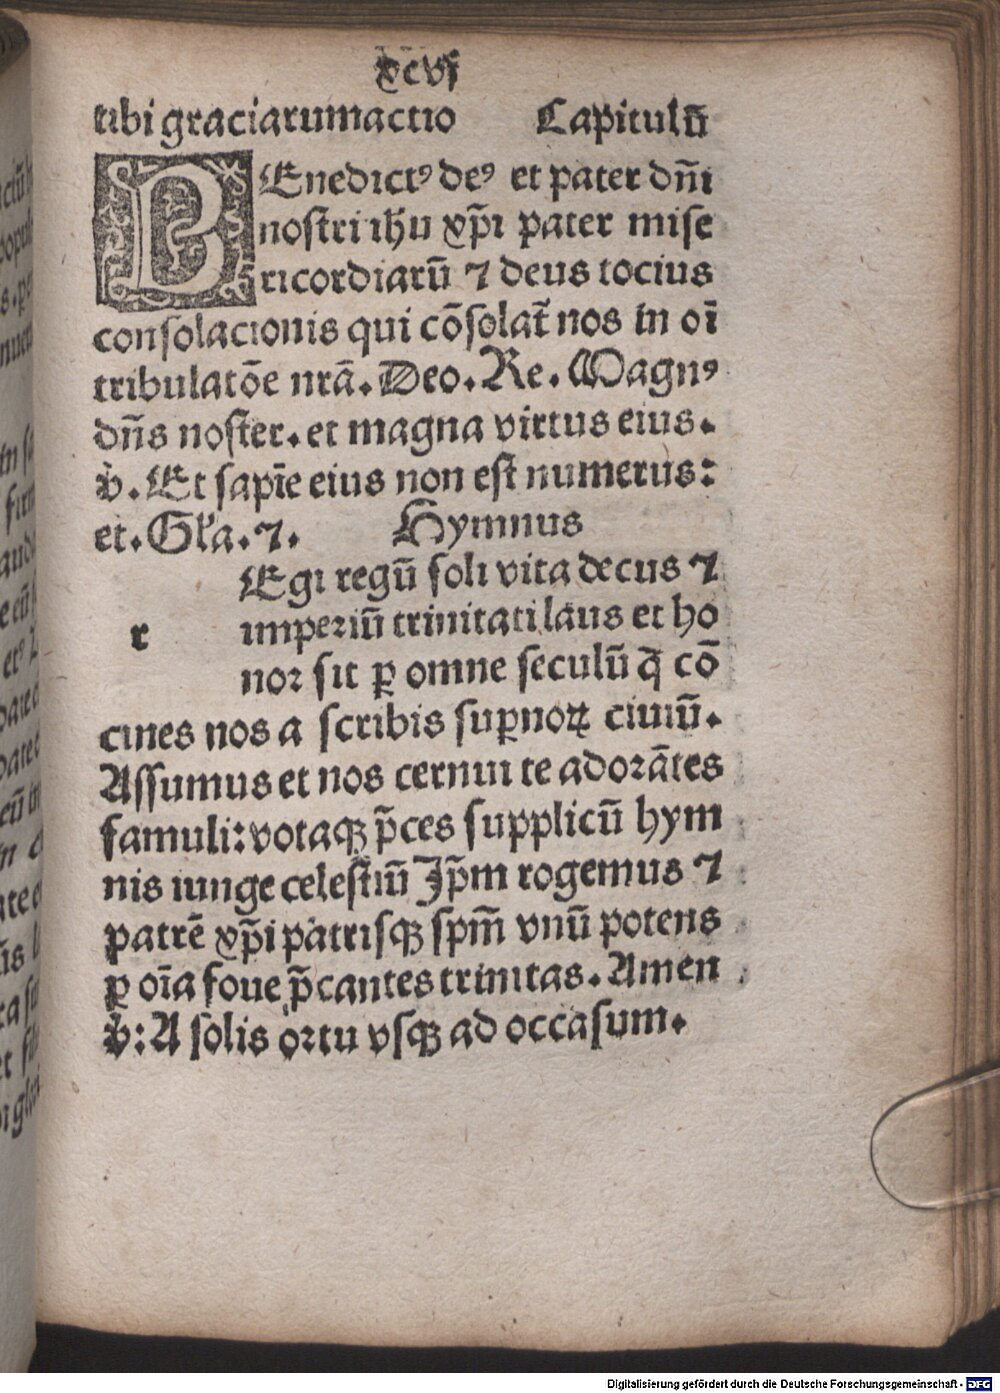 xcvj
tibi graciarumactio Capitulū
BEnedictꝰ deꝰ et pater dn̄i
nostri ihu xp̄i pater mise
ricordiarū ⁊ deus tocius
consolacionis qui cōsolat̄ nos in oī
tribulatōe nrā. Deo. Re. Magnꝰ
dn̄s noster. et magna virtus eius.
v̊. Et sapīe eius non est numerus:
et. Gl'a. ⁊. Hymnus
r Egi regū soli vita decus ⁊
imperiū trinitati laus et ho
nor sit ꝑ omne seculū q̄ cō
cines nos a scribis suꝑnoꝝ ciuiū.
Assumus et nos cernui te adorātes
famuli: votaqꝫ p̄ces supplicū hym
nis iunge celestiū Ip̄m rogemus ⁊
patrē xp̄i patrisqꝫ spm̄ vnū potens
ꝑ oīa foue p̄cantes trinitas. Amen
v̊: A solis ortu vsqꝫ ad occasum.
Digitalisierung gefördert durch die Deutsche Forschungsgemeinschaft - DFG